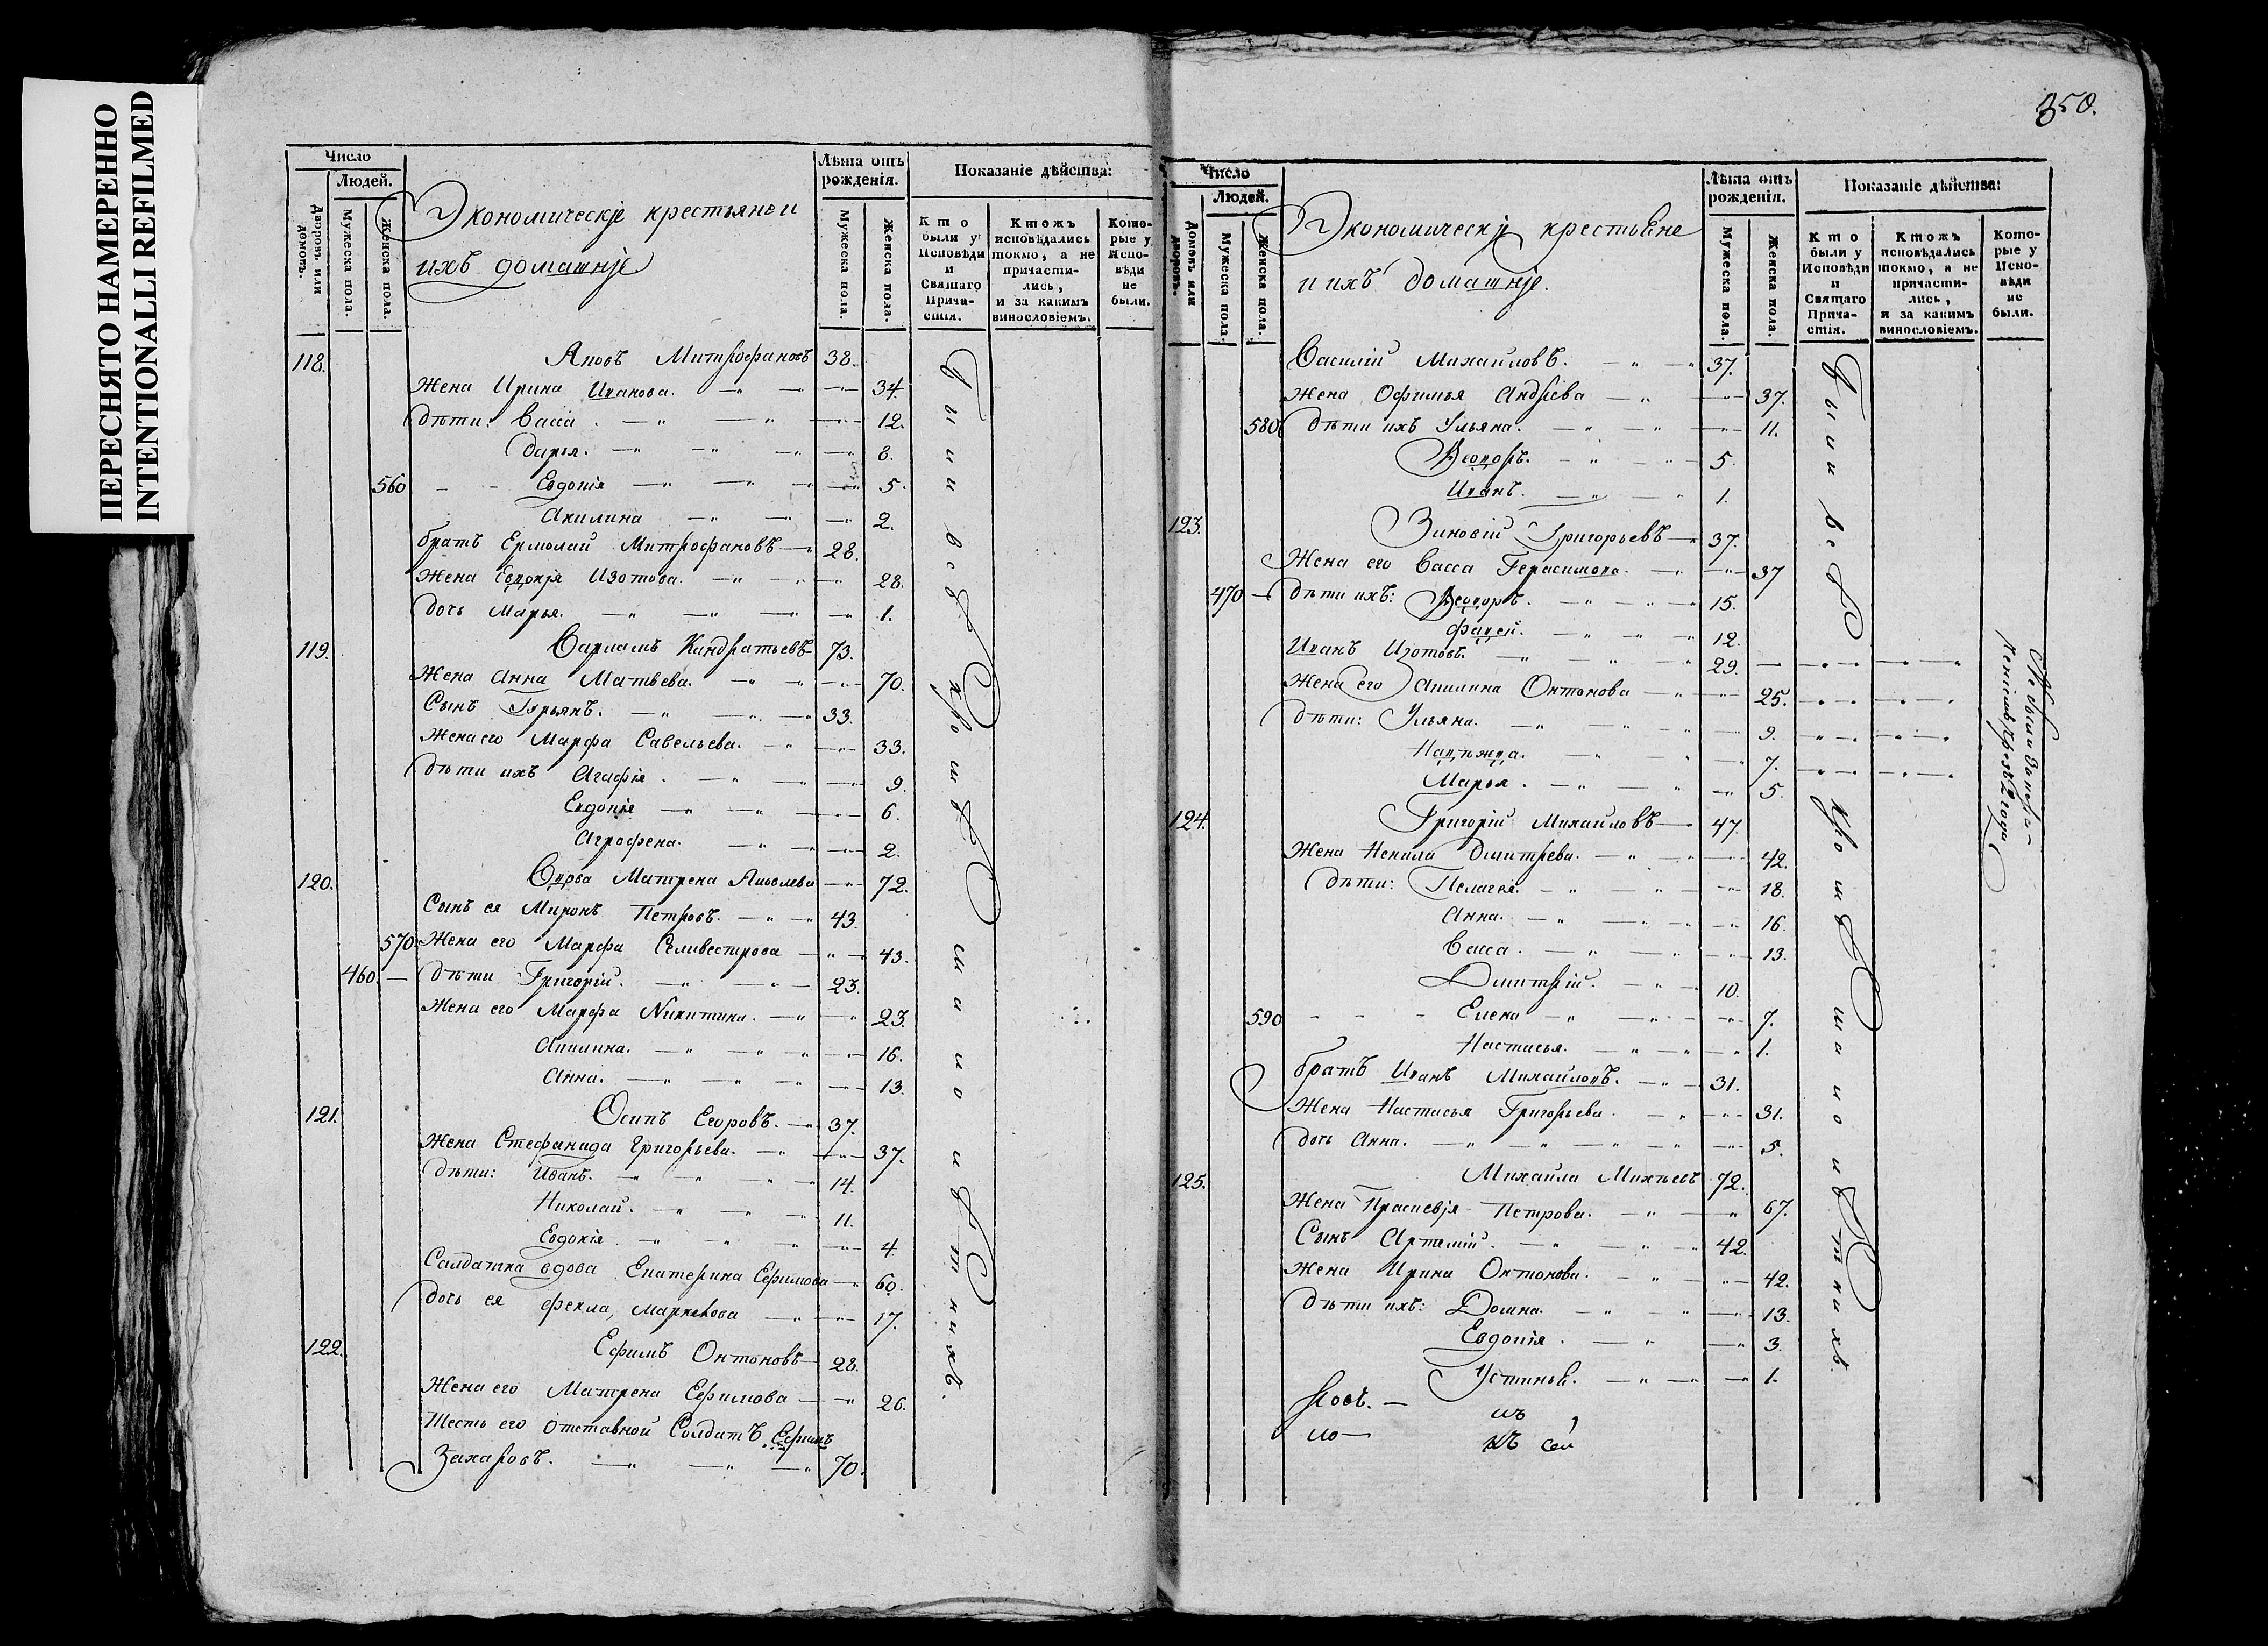 ПЕРЕСНЯТО НАМЕРЕННО
INTENTIONALLI REFILMED
Число
Людей.
Дворовъ или домовъ.
Мужеска пола.
Женска пола.
Экономическіе крестьяне и
ихъ домашніе
Лѣта отъ рожденія.
Мужеска пола.
Женска пола.
Показаніе дѣйства:
Кто были у Исповѣди и Святаго Прича-стія.
Ктожъ исповѣдались токмо, а не причасти-лись, и за какимъ винословіемъ.
Кото-рые у Испо-вѣди не были.
118. Яковъ Митрофановъ 38.
Жена Ирина Иванова. 34.
дѣти: Васса. 12.
Дарья. 8.
560 Евдокія 5.
Акилина 2.
братъ Ермолай Митрофановъ 28.
Жена Евдокія Изотова. 28.
дочь Марья. 1.
119. Варламъ Кандратьевъ 73.
Жена Анна Матвѣева. 70.
Сынъ Гурьянъ. 33.
Жена его Марфа Савельева. 33.
дѣти ихъ Агафія. 9.
Евдокія 6.
Агрофена. 2.
120. Вдова Матрена Яковлева 72.
Сынъ ея Миронъ Петровъ. 43.
570. Жена его Марфа Селивестрова 43.
460. дѣти Григорій. 23.
Жена его Марфа Никитина. 23.
Акилина. 16.
Анна. 13.
121. Осипъ Егоровъ. 37.
Жена Стефанида Григорьева. 37.
дѣти: Иванъ. 14.
Николай. 11.
Евдокія. 4.
Салдатка вдова Екатерина Ефимова 60.
дочь ея Фекла, Маркелова 17.
122. Ефимъ Онтоновъ 28.
Жена его Матрена Ефимова 26.
Тесть его отставной Солдатъ Ефимъ
Захаровъ. 70.
были всѣ кромѣ малолѣтнихъ.
350.
Число
Людей.
Домовъ или дворовъ.
Мужеска пола.
Женска пола.
Экономическіе крестьяне
и ихъ домашніе.
Лѣта отъ рожденія.
Мужеска пола.
Женска пола.
Показаніе дѣйства:
Кто были у Исповѣди и Святаго Прича-стія.
Ктожъ исповѣдались токмо, а не причасти-лись, и за какимъ винословіемъ.
Кото-рые у Испо-вѣди не были.
Василій Михайловъ. 37.
Жена Офимья Андрѣева 37.
580 дѣти ихъ Ульяна. 11.
Ѳеодоръ. 5.
Иванъ. 1.
123. Зиновій Григорьевъ 37.
Жена его Васса Герасимова. 37
470 дѣти ихъ: Ѳеодоръ. 15.
Фадей. 12.
Иванъ Изотовъ. 29.
Жена его Акилина Онтонова 25.
дѣти: Ульяна. 9.
Надѣжда. 7.
Марья. 5.
124. Григорій Михайловъ 47.
Жена Ненила Дмитрева. 42.
дѣти: Пелагея. 18.
Анна. 16.
Васса. 13.
Дмитрій. 10.
590 Елена 7.
Настасья. 1.
братъ Иванъ Михайловъ. 31.
Жена Настасья Григорьева. 31.
дочь Анна. 5.
125. Михайла Михѣевъ 72.
Жена Прасковія Петрова. 67.
Сынъ Артемій. 42.
Жена Ирина Онтонова. 42.
дѣти ихъ: Домна. 13.
Евдокія. 3.
Устинья. 1.
къ сей
были всѣ кромѣ малолѣтнихъ.